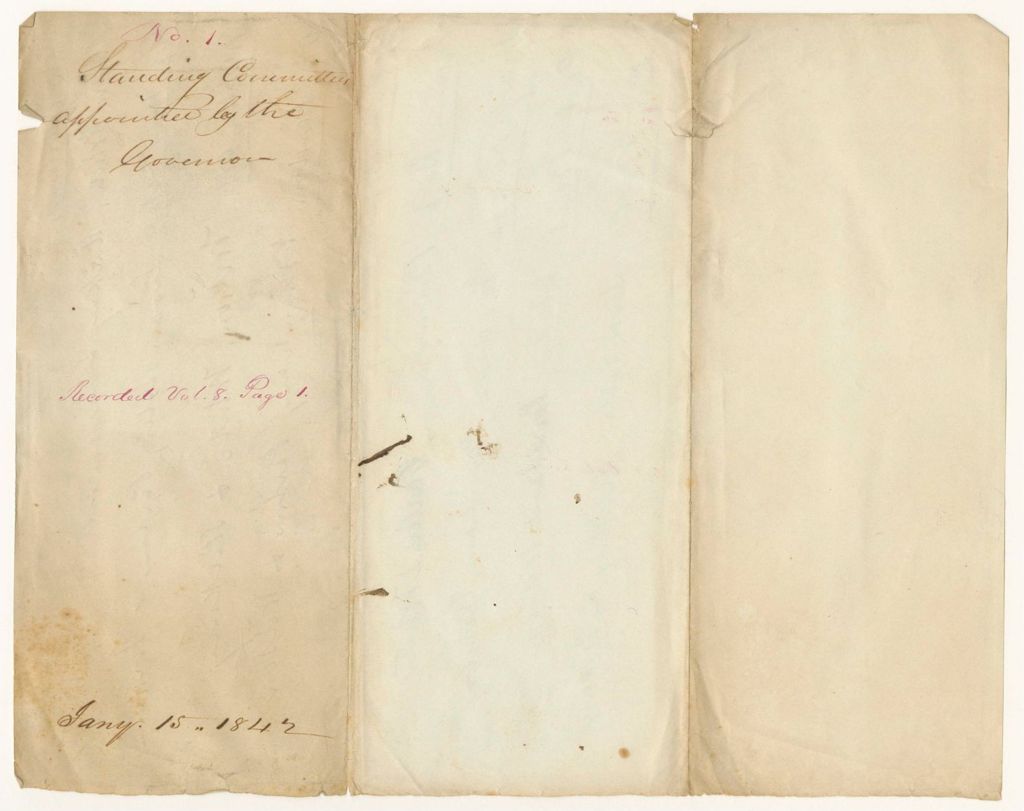 No. 1.
Standing Committees
appointed by the
Governor
Recorded Vol. 8. Page 1.
Jany. 15 „ 1842